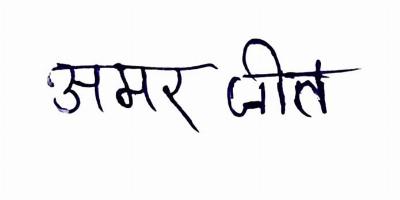 अमर जीत